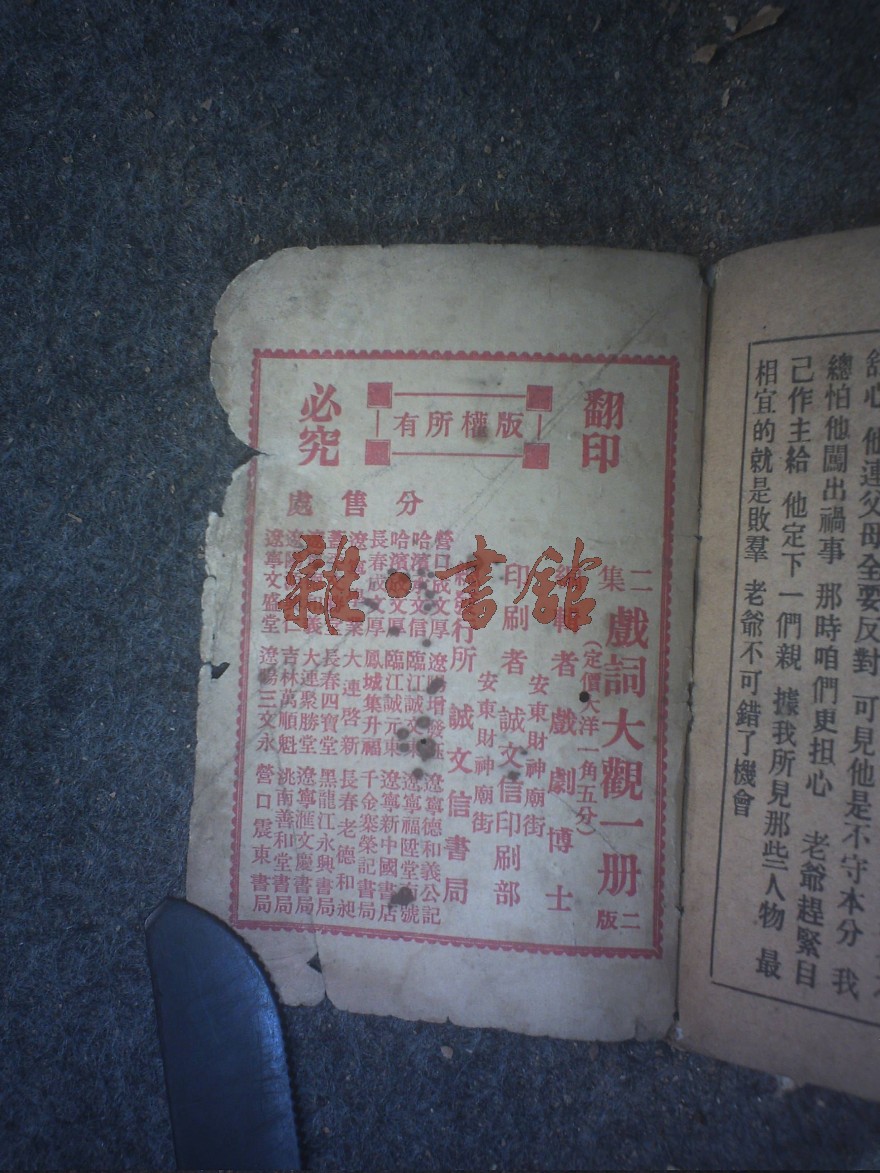 翻印
版權所有
必究
二集 戲詞大觀一册 二版
(定價大洋一角五分)
編輯者 戲劇博士
安東財神廟街
印刷者 誠文信印刷部
安東財神廟街
行所 誠文信書局
分售處
營口成文厚
哈濱
長春成文厚
遼寧文盛堂
臨江誠元東
鳳城集升福
大連啓新
長春四寶堂
大連聚勝堂
吉林萬順魁
遼陽三文永
遼寧德和義公記
遼寧福陞堂
遼寧新中國書店
千金寨榮記書局
長春老德和昶
黑龍江永興書局
遼寧滙文慶書局
洮南善和堂書局
營口震東書局
雜·書館
他連父母全要反對 可見他是不守本分 我
總怕他闖出禍事 那時咱們更担心 老爺趕緊自
己作主給 他定下一們親 據我所見那些人物 最
相宜的就是敗羣 老爺不可錯了機會